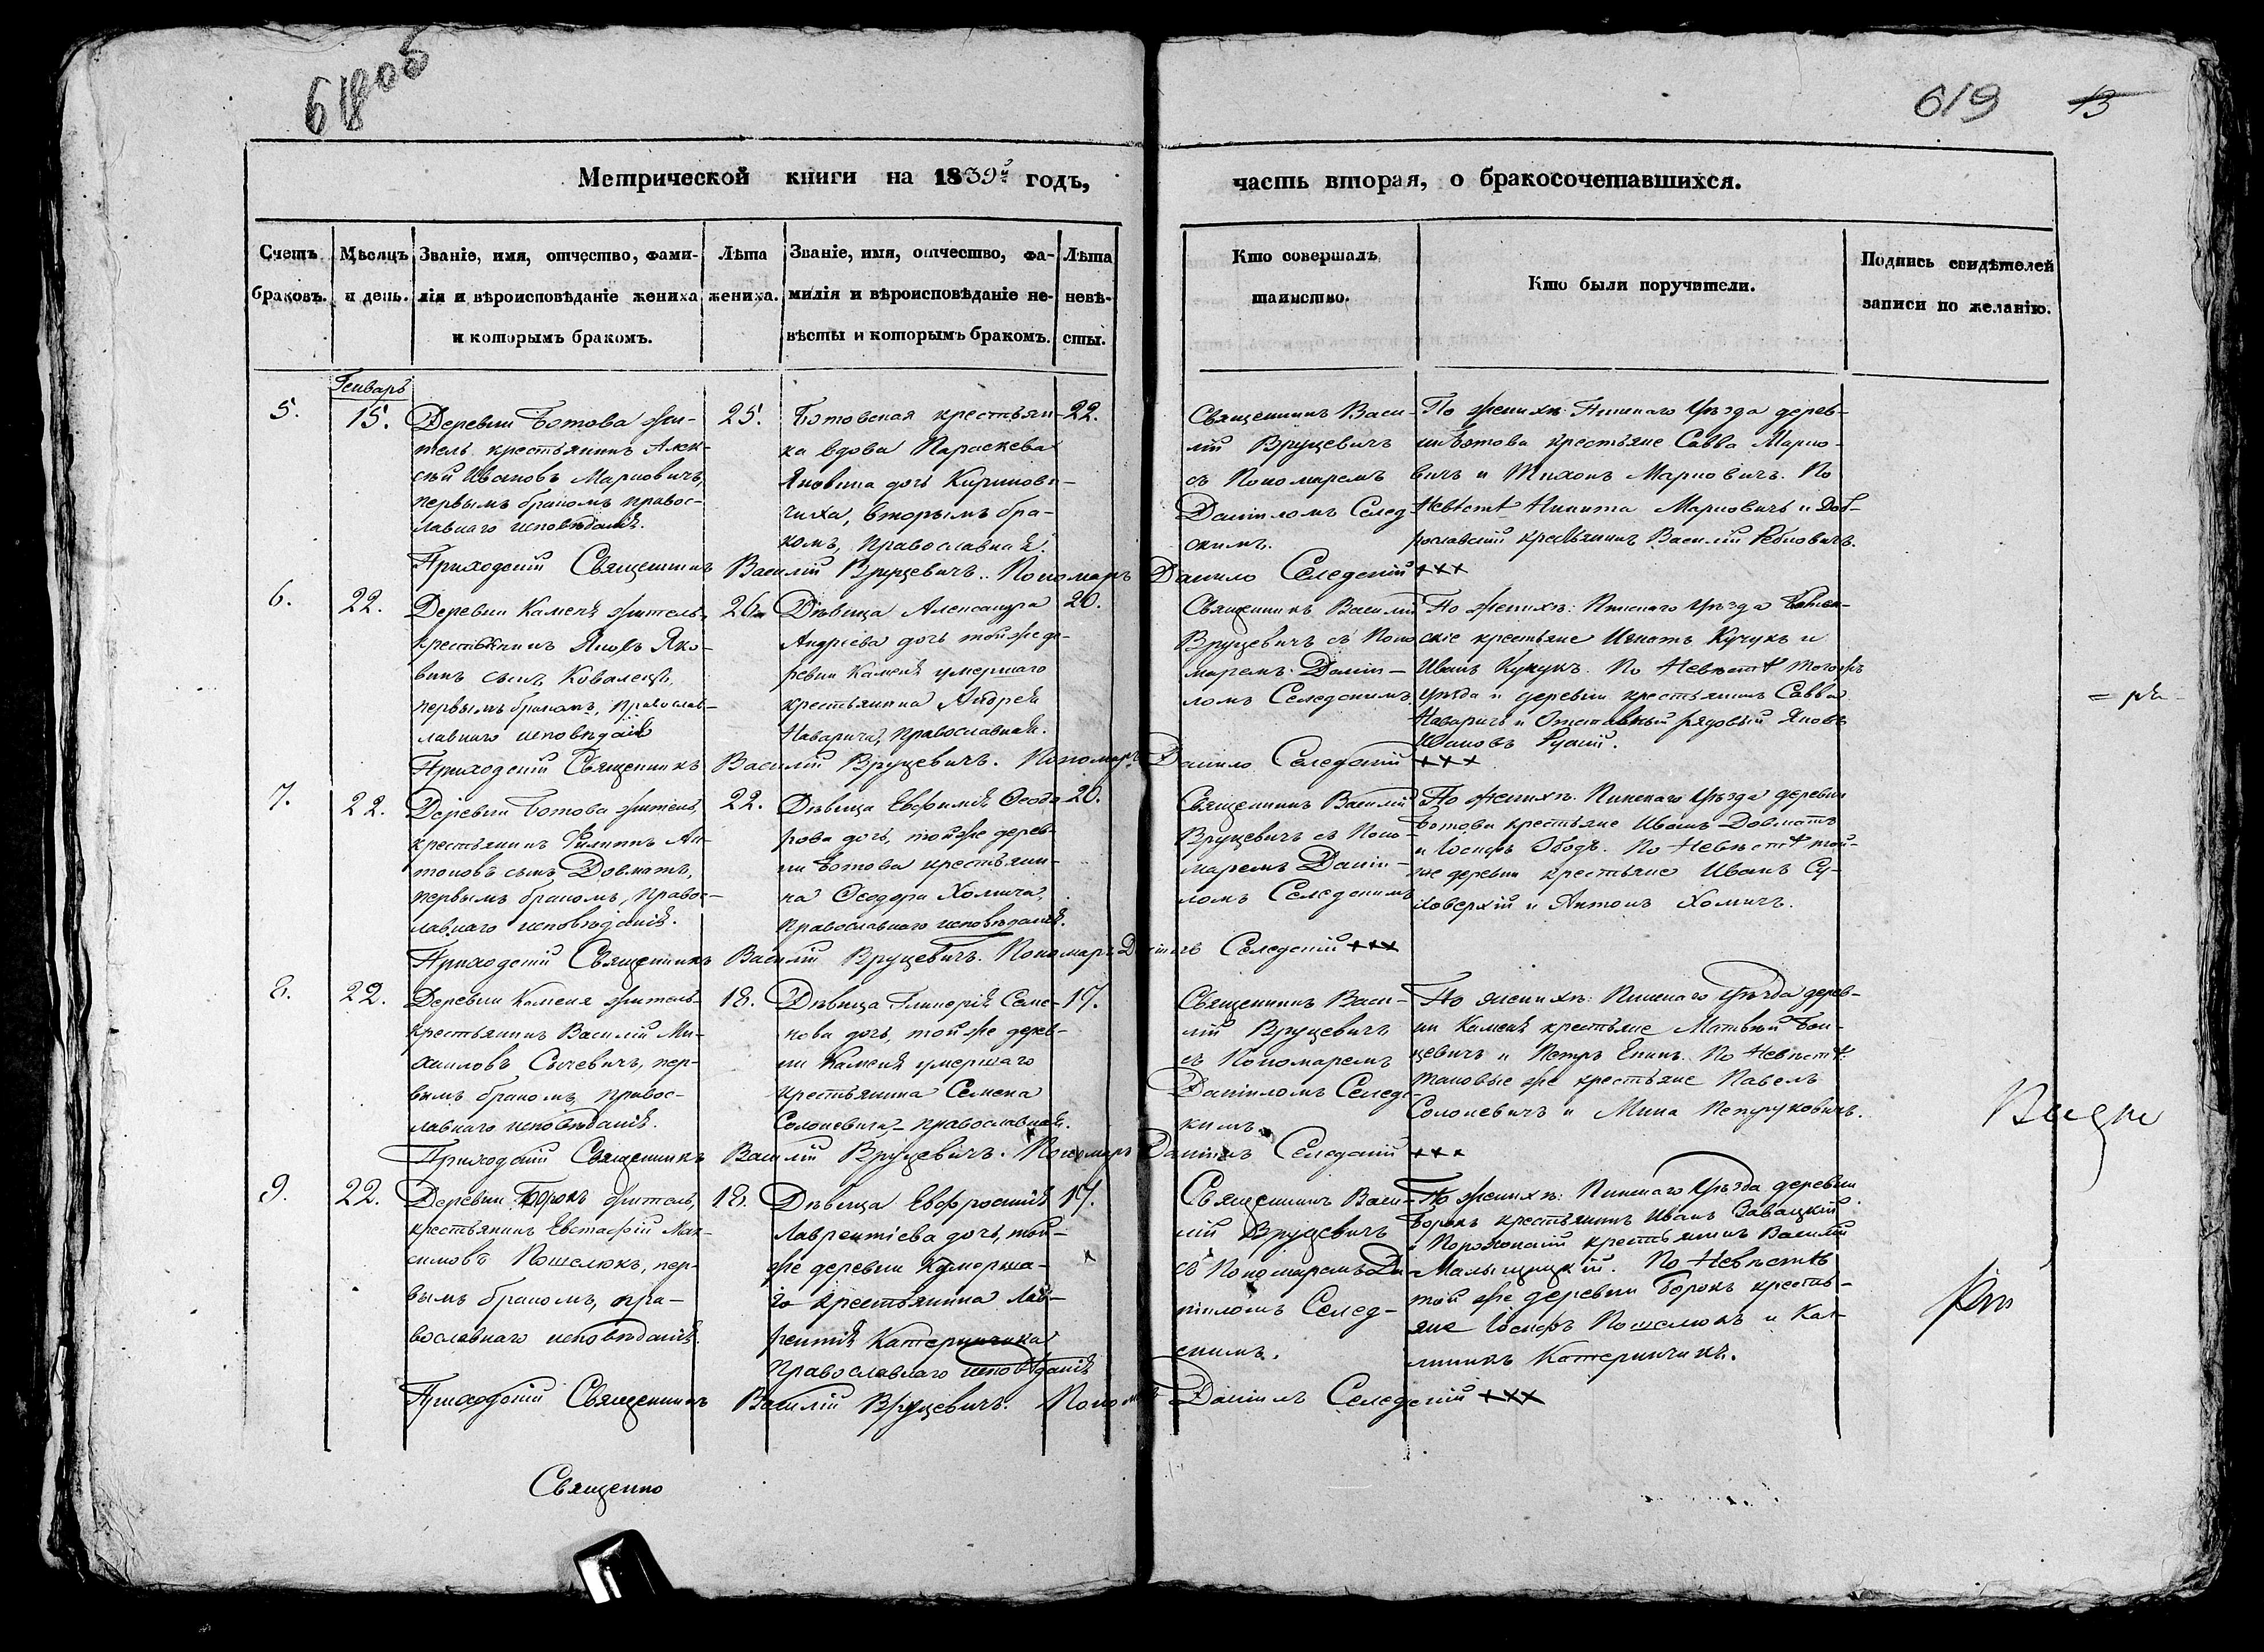 618 об
619 13
Метрической книги на 1839й годъ,
часть вторая, о бракосочетавшихся.
Счетъ браковъ.
Мѣсяцъ и день.
Званіе, имя, отчество, фами-
лія и вѣроисповѣданіе жениха
и которымъ бракомъ.
Лѣта
жениха.
Званіе, имя, отчество, фа-
милія и вѣроисповѣданіе не-
вѣсты и которымъ бракомъ.
Лѣта
невѣ-
сты.
Кто совершалъ
таинство.
Кто были поручители.
Подпись свидѣтелей
записи по желанію.
Генварь
5.
15.
Деревни Ботова жи-
тель крестьянинъ Алек-
сѣй Ивановъ Мариовичъ,
первымъ бракомъ правос-
лавнаго исповѣданія.
25.
Ботовская крестьян-
ка вдова Параскева
Яковина дочь
чиха, вторымъ бра-
комъ, православная.
22.
Священникъ Васи-
лій Вруцевичъ
съ Пономаремъ
Даніиломъ Селед-
скимъ.
По женихѣ: Пинскаго Уѣзда дерев-
ни Ботова крестьяне Савва Марио-
вичъ и Тихонъ Мариовичъ. По
Невѣстѣ Никита Мариовичъ и Доб-
рославскій крестьянинъ Василій
Приходскій Священникъ Василій Вруцевичъ. Пономарь Данило Селедскій +++
6.
22.
Деревни Каменя житель
крестьянинъ Яковъ Яко-
винъ сынъ Ковалецъ,
первымъ бракомъ, православ-
лавнаго исповѣданія
26.
Дѣвица Александра
Андрѣева дочь той же де-
ревни Каменя умершаго
крестьянина Андрея
Наварича, православная.
20.
Священникъ Василій
Вруцевичъ съ Поно-
маремъ Даніи-
ломъ Селедскимъ.
По женихѣ: Пинскаго Уѣзда
скіе крестьяне Игнатъ Кучукъ и
Иванъ Кучукъ. По Невѣстѣ тогожъ
Уѣзда и деревни крестьянинъ Савва
Наваричъ и Отставный рядовый Яковъ
Ивановъ
= ра
Приходскій Священникъ Василій Вруцевичъ. Пономарь Данило Селедскій +++
7.
22.
Деревни Ботова житель,
крестьянинъ Филиппъ Ан-
тоновъ сынъ Довматъ,
первымъ бракомъ, правос-
лавнаго исповѣданія.
22.
Дѣвица Евфимія Ѳеодо-
рова дочь, той же дерев-
ни Ботова крестьяни-
на Ѳеодора Хомича,
православнаго исповѣданія.
20.
Священникъ Василій
Вруцевичъ съ Поно-
маремъ Даніи-
ломъ Селедскимъ
По женихѣ: Пинскаго Уѣзда деревни
Ботова крестьяне Иванъ Довматъ
и Іосифъ По Невѣстѣ той-
же деревни крестьяне Иванъ Су-
ловержій и Антонъ Хомичъ.
Приходскій Священникъ Василій Вруцевичъ. Пономарь Даніилъ Селедскій +++
8.
22.
Деревни Каменя житель
крестьянинъ Василій Ми-
хаиловъ Сычевичъ, пер-
вымъ бракомъ, правос-
лавнаго исповѣданія.
18.
Дѣвица Гликерія Семе-
нова дочь, той же дерев-
ни Каменя умершаго
крестьянина Семена
Солоневича, православная.
17.
Священникъ Васи-
лій Вруцевичъ
съ Пономаремъ
Даніиломъ Селедс-
кимъ.
По женихѣ: Пинскаго Уѣзда дерев-
ни Каменя крестьяне Матвѣй
цевичъ и Петръ По Невѣстѣ:
таковые же крестьяне Павелъ
Солоневичъ и Мина Петруковичъ.
Приходскій Священникъ Василій Вруцевичъ. Пономарь Даніилъ Селедскій +++
9.
22.
Деревни Борокъ житель,
крестьянинъ Евстафій Мак-
симовъ Пошелюкъ, пер-
вымъ бракомъ, пра-
вославнаго исповѣданія.
18.
Дѣвица Евфросинія
Лаврентіева дочь, той-
же деревни умерша-
го крестьянина Лав-
рентія Катеринчика
Православнаго исповѣданія
17.
Священникъ Васи-
лій Вруцевичъ
съ Пономаремъ Да-
ніиломъ Селед-
скимъ.
По женихѣ: Пинскаго Уѣзда деревни
Борокъ крестьянинъ Иванъ Завацкій
и крестьянинъ Василій
Малыщицкій. По Невѣстѣ
той же деревни Борокъ кресть-
яне Іосифъ Пошелюкъ и Кал-
линикъ Катеринчикъ.
Приходскій Священникъ Василій Вруцевичъ. Пономарь Даніилъ Селедскій +++
Священно